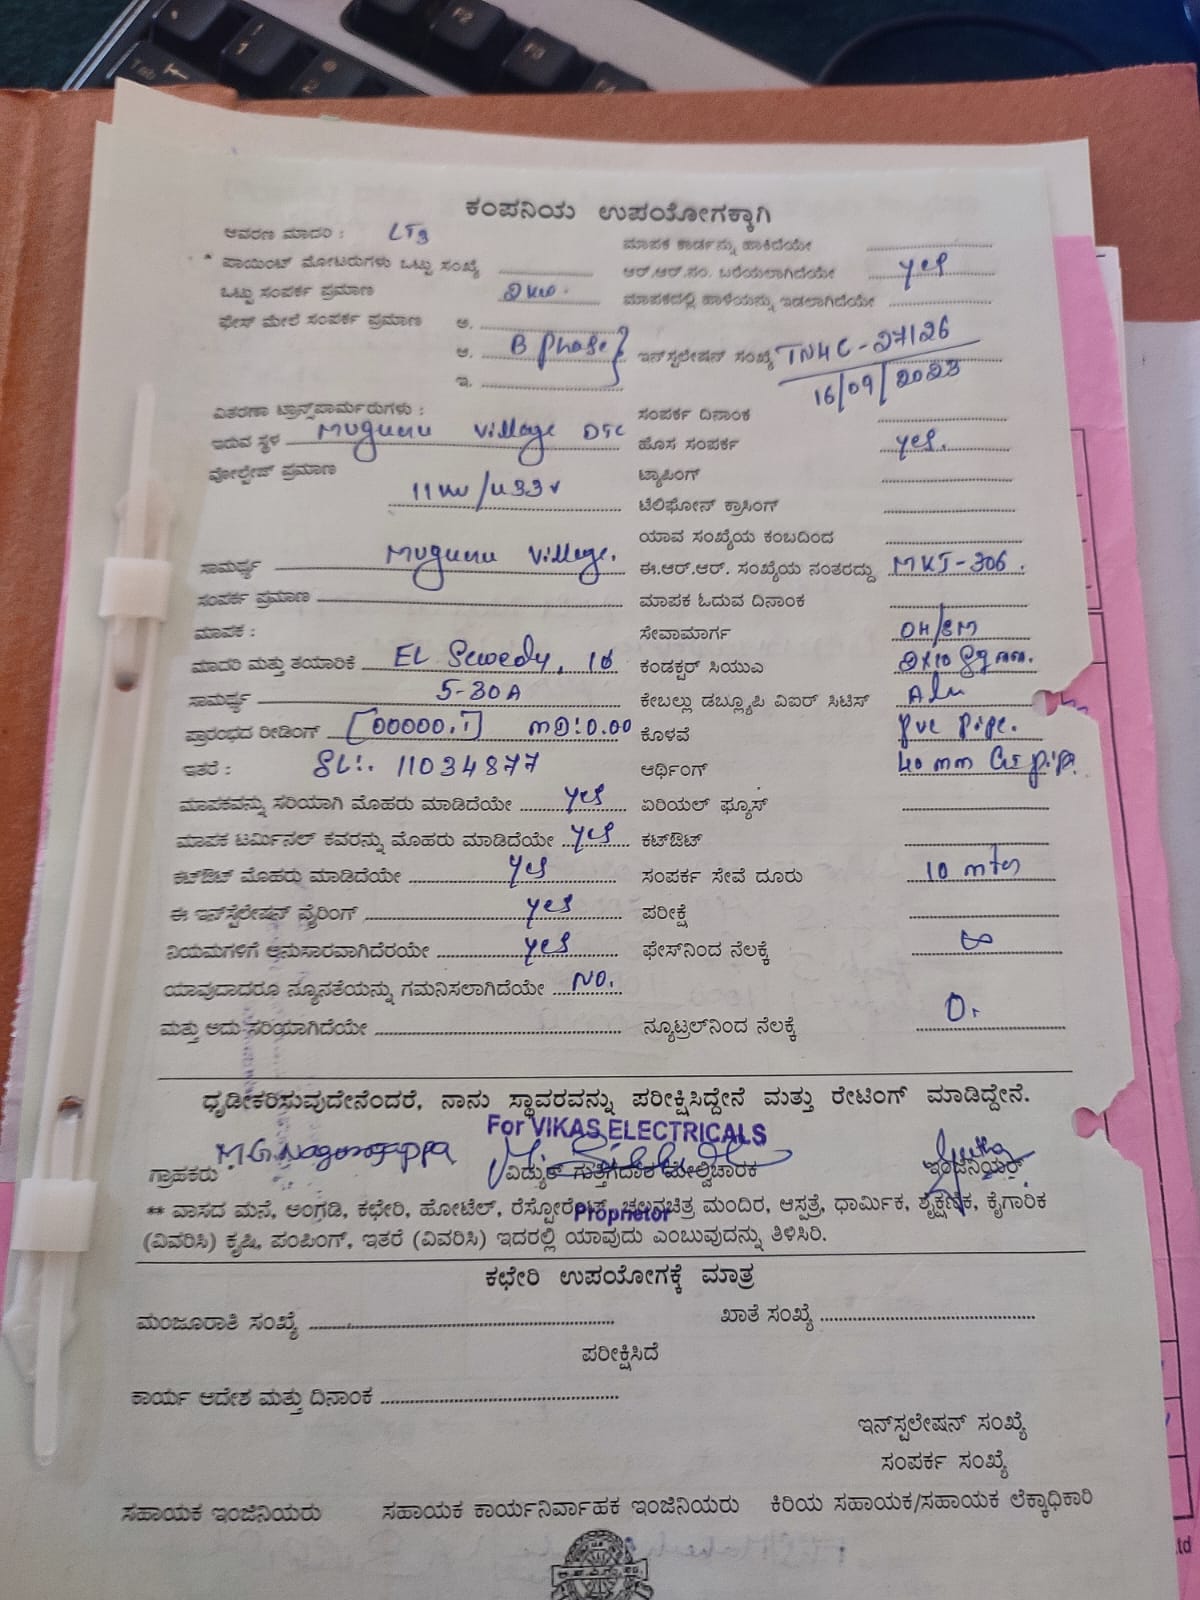 ಕಂಪನಿಯ ಉಪಯೋಗಕ್ಕಾಗಿ
ಆವರಣ ಮಾದರಿ : LT3 ಮಾಪಕ ಕಾರ್ಡನ್ನು ಹಾಕಿದೆಯೇ
* ಪಾಯಿಂಟ್ ಮೋಟರುಗಳು ಒಟ್ಟು ಸಂಖ್ಯೆ ಆರ್.ಆರ್.ನಂ. ಬರೆಯಲಾಗಿದೆಯೇ yes
ಒಟ್ಟು ಸಂಪರ್ಕ ಪ್ರಮಾಣ 2kw. ಮಾಪಕದಲ್ಲಿ ಹಾಳೆಯನ್ನು ಇಡಲಾಗಿದೆಯೇ
ಫೇಸ್ ಮೇಲೆ ಸಂಪರ್ಕ ಪ್ರಮಾಣ ಅ.
ಆ. B phase} ಇನ್‌ಸ್ಟಲೇಷನ್ ಸಂಖ್ಯೆ TN4C-27126
ಇ. 16/09/2023
ವಿತರಣಾ ಟ್ರಾನ್ಸ್‌ಪಾರ್ಮರುಗಳು : ಸಂಪರ್ಕ ದಿನಾಂಕ
ಇರುವ ಸ್ಥಳ Muguru Village DTC ಹೊಸ ಸಂಪರ್ಕ yes.
ವೋಲ್ಟೇಜ್ ಪ್ರಮಾಣ 11kv/433v ಟ್ಯಾಪಿಂಗ್
ಟೆಲಿಫೋನ್ ಕ್ರಾಸಿಂಗ್
ಯಾವ ಸಂಖ್ಯೆಯ ಕಂಬದಿಂದ
ಸಾಮರ್ಥ್ಯ Muguru Village. ಈ.ಆರ್.ಆರ್. ಸಂಖ್ಯೆಯ ನಂತರದ್ದು MKJ-306.
ಸಂಪರ್ಕ ಪ್ರಮಾಣ ಮಾಪಕ ಓದುವ ದಿನಾಂಕ
ಮಾಪಕ : ಸೇವಾಮಾರ್ಗ OH/SM
ಮಾದರಿ ಮತ್ತು ತಯಾರಿಕೆ EL Sewedy, 1ø ಕಂಡಕ್ಟರ್ ಸಿಯುಎ 2x10 Sqmm.
ಸಾಮರ್ಥ್ಯ 5-30A ಕೇಬಲ್ಲು ಡಬ್ಲ್ಯೂಪಿ ವಿಐರ್ ಸಿಟಿಸ್ Alu
ಪ್ರಾರಂಭದ ರೀಡಿಂಗ್ [00000.1] MD:0.00 ಕೊಳವೆ Pvc pipe.
ಇತರೆ : SL:. 11034877 ಆರ್ಥಿಂಗ್ 40 mm GI pipe
ಮಾಪಕವನ್ನು ಸರಿಯಾಗಿ ಮೊಹರು ಮಾಡಿದೆಯೇ yes ಏರಿಯಲ್ ಫ್ಯೂಸ್
ಮಾಪಕ ಟರ್ಮಿನಲ್ ಕವರನ್ನು ಮೊಹರು ಮಾಡಿದೆಯೇ yes ಕಟ್‌ಔಟ್
ಕಟ್‌ಔಟ್ ಮೊಹರು ಮಾಡಿದೆಯೇ yes ಸಂಪರ್ಕ ಸೇವೆ ದೂರು 10 mtr
ಈ ಇನ್‌ಸ್ಟೆಲೇಷನ್ ವೈರಿಂಗ್ yes ಪರೀಕ್ಷೆ
ನಿಯಮಗಳಿಗೆ ಅನುಸಾರವಾಗಿದೆರಯೇ yes ಫೇಸ್‌ನಿಂದ ನೆಲಕ್ಕೆ ∞
ಯಾವುದಾದರೂ ನ್ಯೂನತೆಯನ್ನು ಗಮನಿಸಲಾಗಿದೆಯೇ NO.
ಮತ್ತು ಅದು ಸರಿಯಾಗಿದೆಯೇ ನ್ಯೂಟ್ರಲ್‌ನಿಂದ ನೆಲಕ್ಕೆ 0.
ಧೃಡೀಕರಿಸುವುದೇನೆಂದರೆ, ನಾನು ಸ್ಥಾವರವನ್ನು ಪರೀಕ್ಷಿಸಿದ್ದೇನೆ ಮತ್ತು ರೇಟಿಂಗ್ ಮಾಡಿದ್ದೇನೆ.
For VIKAS ELECTRICALS
ಗ್ರಾಹಕರು ವಿದ್ಯುತ್ ಗುತ್ತಿಗೆದಾರ ಮೇಲ್ವಿಚಾರಕ ಇಂಜಿನಿಯರ್
** ವಾಸದ ಮನೆ, ಅಂಗಡಿ, ಕಛೇರಿ, ಹೋಟೆಲ್, ರೆಸ್ಟೋರೆಂಟ್, ಚಲನಚಿತ್ರ ಮಂದಿರ, ಆಸ್ಪತ್ರೆ, ಧಾರ್ಮಿಕ, ಶೈಕ್ಷಣಿಕ, ಕೈಗಾರಿಕ
Proprietor
(ವಿವರಿಸಿ) ಕೃಷಿ, ಪಂಪಿಂಗ್, ಇತರೆ (ವಿವರಿಸಿ) ಇದರಲ್ಲಿ ಯಾವುದು ಎಂಬುವುದನ್ನು ತಿಳಿಸಿರಿ.
ಕಛೇರಿ ಉಪಯೋಗಕ್ಕೆ ಮಾತ್ರ
ಮಂಜೂರಾತಿ ಸಂಖ್ಯೆ ಖಾತೆ ಸಂಖ್ಯೆ
ಪರೀಕ್ಷಿಸಿದೆ
ಕಾರ್ಯ ಆದೇಶ ಮತ್ತು ದಿನಾಂಕ
ಇನ್‌ಸ್ಟಲೇಷನ್ ಸಂಖ್ಯೆ
ಸಂಪರ್ಕ ಸಂಖ್ಯೆ
ಸಹಾಯಕ ಇಂಜಿನಿಯರು ಸಹಾಯಕ ಕಾರ್ಯನಿರ್ವಾಹಕ ಇಂಜಿನಿಯರು ಕಿರಿಯ ಸಹಾಯಕ/ಸಹಾಯಕ ಲೆಕ್ಕಾಧಿಕಾರಿ